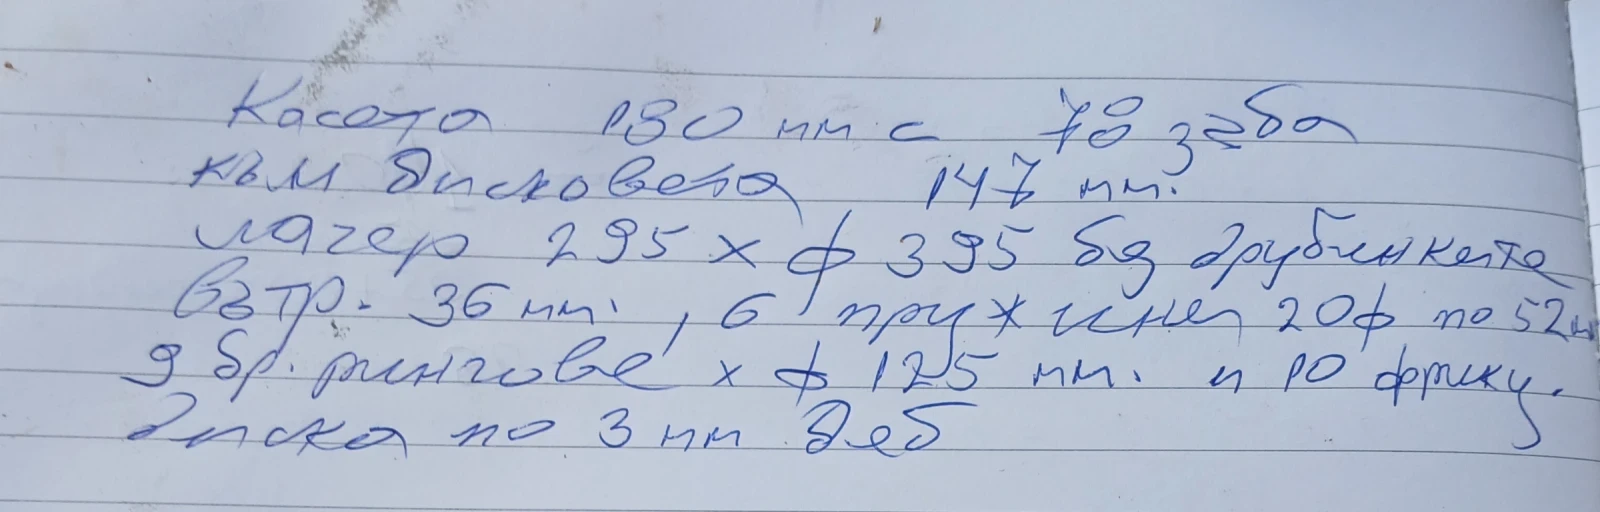 Касета 180 мм с 78 зъба
към дисковета 147 мм.
лагер 295 х ф 395 без
вътр. 36 мм., 6 пружини 20ф по 52м
9 бр. рингове х ф 125 мм. и 10 фрикц.
диска по 3 мм деб